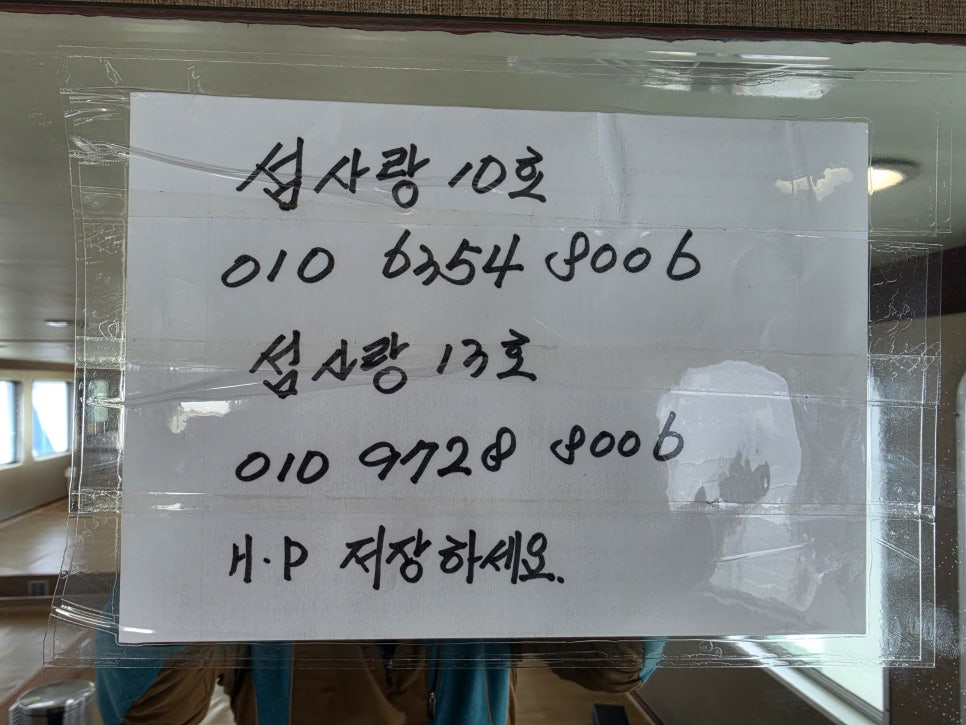 섬사랑 10호
010 6354 8006
섬사랑 13호
010 9728 8006
H.P 저장하세요.